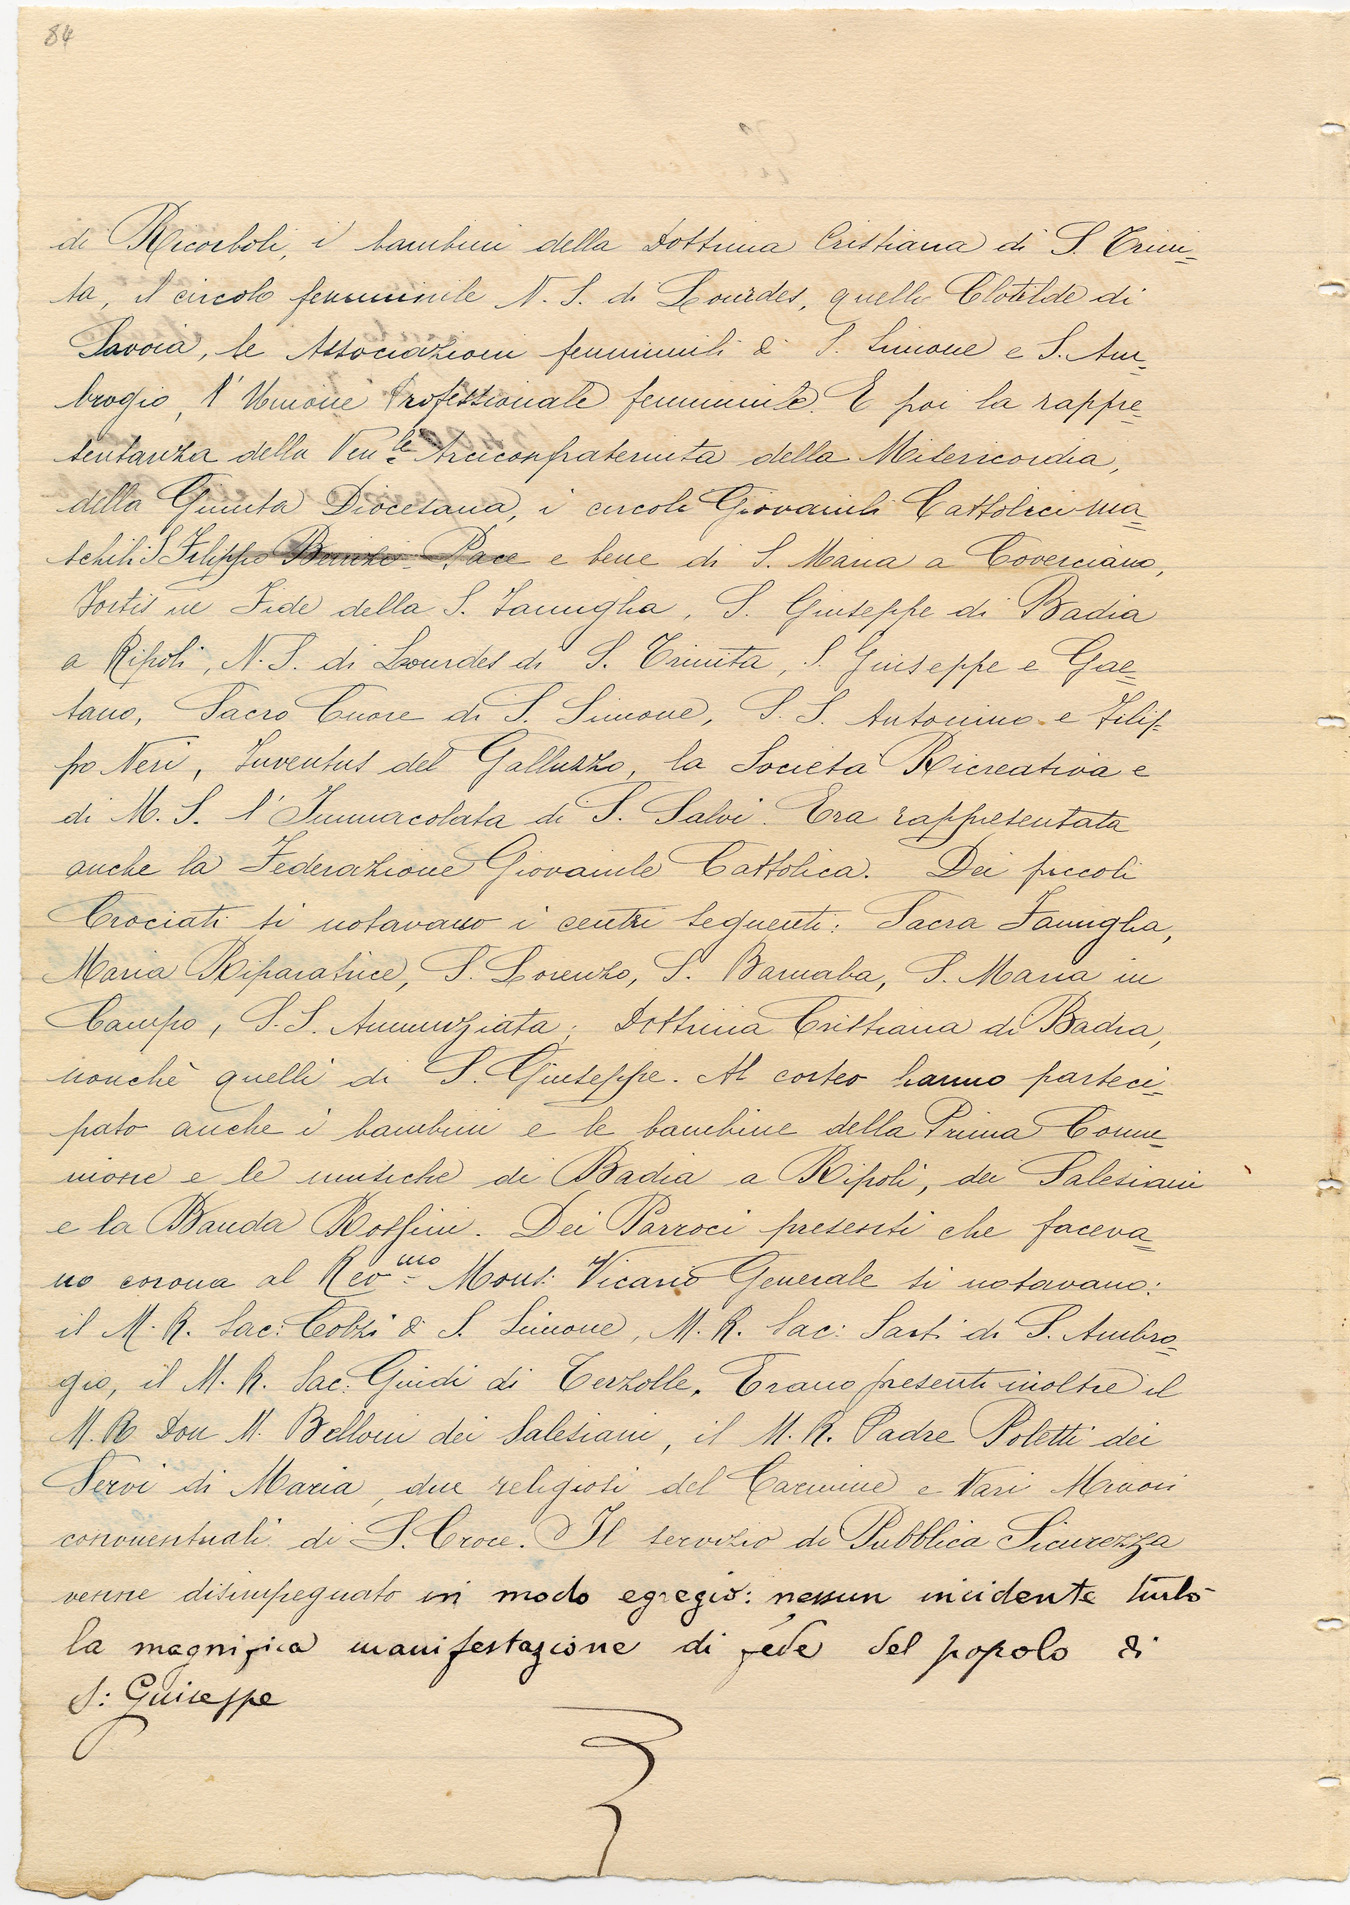 84
di Ricorboli, i bambini della Dottrina Cristiana di S. Trini=
ta, il circolo femminile N. S. di Lourdes, quello Clotilde di
Savoia, le Associazioni femminili di S. Simone e S. Am=
brogio, l'Unione Professionale femminile. E poi la rappre=
sentanza della Ven.le Arciconfraternita della Misericordia,
della Giunta Diocesana, i circoli Giovanili Cattolici ma=
schili S. Filippo Benizi - Pace e bene di S. Maria a Coverciano,
Fortis in Fide della S. Famiglia, S. Giuseppe di Badia
a Ripoli, N. S. di Lourdes di S. Trinita, S. Giuseppe e Gae=
tano, Sacro Cuore di S. Simone, S. S. Antonino e Filip=
po Neri, Juventus del Galluzzo, la Società Ricreativa e
di M. S. l'Immacolata di S. Salvi. Era rappresentata
anche la Federazione Giovanile Cattolica. Dei piccoli
Crociati si notavano i centri seguenti: Sacra Famiglia,
Maria Riparatrice, S. Lorenzo, S. Barnaba, S. Maria in
Campo, S.S. Annunziata; Dottrina Cristiana di Badia,
nonchè quelli di S. Giuseppe. Al corteo hanno parteci=
pato anche i bambini e le bambine della Prima Comu=
nione e le musiche di Badia a Ripoli, dei Salesiani
e la Banda Rossini. Dei Parroci presenti che faceva=
no corona al Rev.mo Mons: Vicario Generale si notavano:
il M. R. Sac: Cobzi di S. Simone, M. R. Sac: Sarti di S. Ambro=
gio, il M. R. Sac: Guidi di Terzolle. Erano presenti inoltre il
M. R. Don M. Belloni dei Salesiani, il M. R. Padre Poletti dei
Servi di Maria, due religiosi del Carmine e vari Minori
conventuali di S. Croce. Il servizio di Pubblica Sicurezza
venne disimpegnato in modo egregio: nessun incidente turbò
la magnifica manifestazione di fede del popolo di
S: Giuseppe